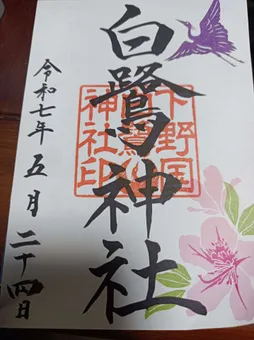 白鷺神社
下野国
神社印
令和七年五月二十四日